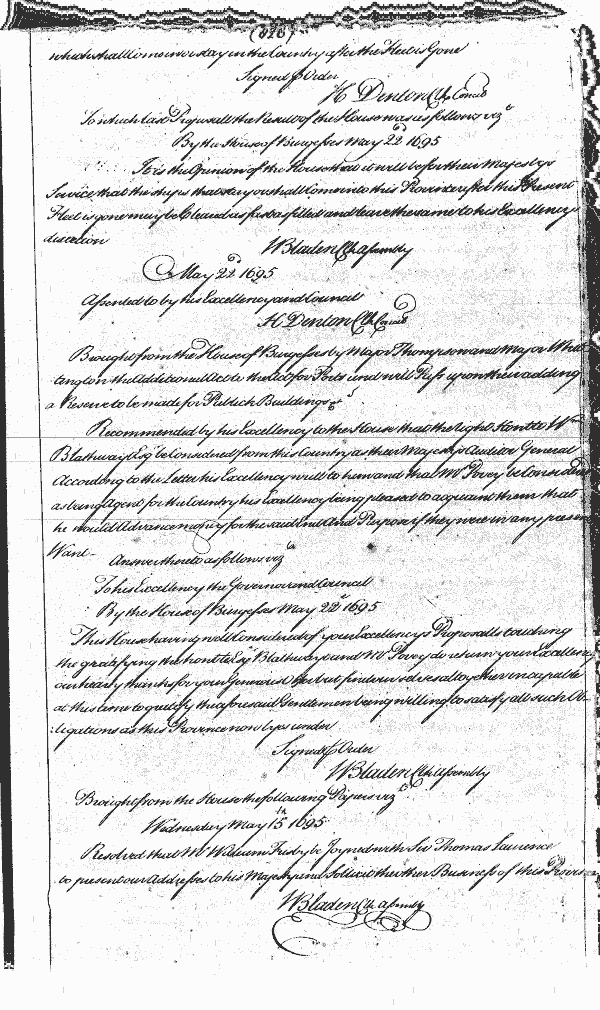 which shall Come or stay in the Country after the Fleet is Gone
Signed p Order
H Denton Clk Council
To which last Proposall the Result of the House was as followes vizt
By the House of Burgesses May 22d 1695
It is the Opinion of the House that it will be for their Majestys
Service that the ships that stay or shall Come into this Province after this Present
Fleet is gone may be Cleared as fast as filled and leave the same to his Excellencys
discretion
W Bladen Clk Assembly
May 22d 1695
Assented to by his Excellency and Council
H Denton Clk Council
Brought from the House of Burgesses by Major Thompson and Major Whit
tington the Additional Act to the Act for Ports and will Pass upon their adding
a Reserve to be made for Publick Buildings &c
Recommended by his Excellency to the House that the right Honble Wm
Blathwayt Esqr be Considered from this Country as their Majestys Auditor General
According to the Letter his Excellency writ to him and that Mr Povey be Considered
as being Agent for the Country his Excellency being pleased to acquaint them that
he would Advance money for the said End And Purpose if they were in any present
Want -
Answer thereto as follows vizt
To his Excellency the Governor and Council
By the House of Burgesses May 22d 1695
This House having well Considered of your Excellencys Proposalls touching
the gratifying the honble Esqr Blathwayt and Mr Povey do return your Excellency
our hearty thanks for your Generous Offer but find ourselves altogether incapable
at this time to gratify the aforesaid Gentlemen being willing to satisfy all such Ob
ligations as this Province now lyes under
Signed p Order
W Bladen Clk Assembly
Brought from the House the following Papers vizt
Wednesday May 15th 1695
Resolved that Mr William Frisby be Joyned with Sir Thomas Laurence
to present our Addresses to his Majesty and Sollicit the other Business of this Province
W Bladen Clk Assembly